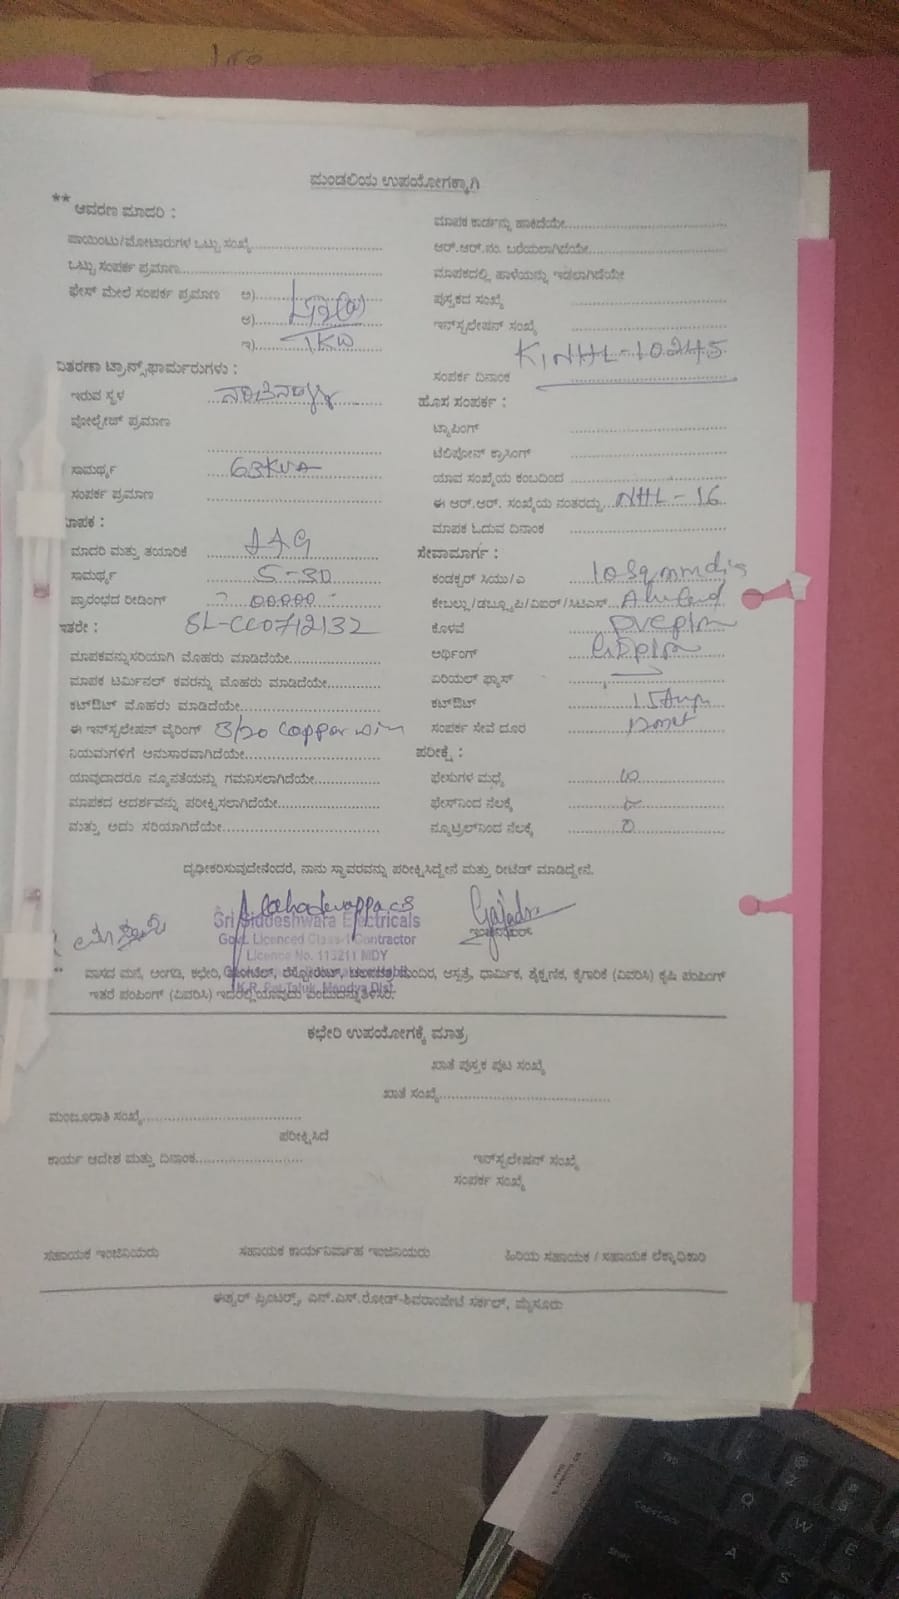 ಮಂಡಲಿಯ ಉಪಯೋಗಕ್ಕಾಗಿ
** ಆವರಣ ಮಾದರಿ :
ಪಾಯಿಂಟು/ಮೋಟಾರುಗಳ ಒಟ್ಟು ಸಂಖ್ಯೆ
ಒಟ್ಟು ಸಂಪರ್ಕ ಪ್ರಮಾಣ
ಫೇಸ್ ಮೇಲೆ ಸಂಪರ್ಕ ಪ್ರಮಾಣ ಅ)
ಆ)
ಇ) 1KW
ವಿತರಣಾ ಟ್ರಾನ್ಸ್‌ಫಾರ್ಮರುಗಳು :
ಇರುವ ಸ್ಥಳ
ವೋಲ್ಟೇಜ್ ಪ್ರಮಾಣ
ಸಾಮರ್ಥ್ಯ 63KVA
ಸಂಪರ್ಕ ಪ್ರಮಾಣ
ಮಾಪಕ :
ಮಾದರಿ ಮತ್ತು ತಯಾರಿಕೆ
ಸಾಮರ್ಥ್ಯ 5-30
ಪ್ರಾರಂಭದ ರೀಡಿಂಗ್ 00000
ಇತರೇ : SL-CC0712132
ಮಾಪಕವನ್ನು ಸರಿಯಾಗಿ ಮೊಹರು ಮಾಡಿದೆಯೇ
ಮಾಪಕ ಟರ್ಮಿನಲ್ ಕವರನ್ನು ಮೊಹರು ಮಾಡಿದೆಯೇ
ಕಟ್‌ಔಟ್ ಮೊಹರು ಮಾಡಿದೆಯೇ
ಈ ಇನ್‌ಸ್ಟಲೇಷನ್ ವೈರಿಂಗ್ 3/20 copper
ನಿಯಮಗಳಿಗೆ ಅನುಸಾರವಾಗಿದೆಯೇ
ಯಾವುದಾದರೂ ನ್ಯೂನತೆಯನ್ನು ಗಮನಿಸಲಾಗಿದೆಯೇ
ಮಾಪಕದ ಆದರ್ಶವನ್ನು ಪರೀಕ್ಷಿಸಲಾಗಿದೆಯೇ
ಮತ್ತು ಅದು ಸರಿಯಾಗಿದೆಯೇ
ಮಾಪಕ ಕಾರ್ಡನ್ನು ಹಾಕಿದೆಯೇ
ಆರ್.ಆರ್.ನಂ. ಬರೆಯಲಾಗಿದೆಯೇ
ಮಾಪಕದಲ್ಲಿ ಹಾಳೆಯನ್ನು ಇಡಲಾಗಿದೆಯೇ
ಪುಸ್ತಕದ ಸಂಖ್ಯೆ
ಇನ್‌ಸ್ಟಲೇಷನ್ ಸಂಖ್ಯೆ
KNHL-10245
ಸಂಪರ್ಕ ದಿನಾಂಕ
ಹೊಸ ಸಂಪರ್ಕ :
ಟ್ಯಾಪಿಂಗ್
ಟೆಲಿಫೋನ್ ಕ್ರಾಸಿಂಗ್
ಯಾವ ಸಂಖ್ಯೆಯ ಕಂಬದಿಂದ
ಈ ಆರ್.ಆರ್. ಸಂಖ್ಯೆಯ ನಂತರದ್ದು NHL-16
ಮಾಪಕ ಓದುವ ದಿನಾಂಕ
ಸೇವಾಮಾರ್ಗ :
ಕಂಡಕ್ಟರ್ ಸಿಯು/ಎ 10sqmm
ಕೇಬಲ್ಲು/ಡಬ್ಲ್ಯೂಪಿ/ವಿಐಆರ್/ಸಿಟಿಎಸ್
ಕೊಳವೆ
ಅರ್ಥಿಂಗ್
ಏರಿಯಲ್ ಫ್ಯೂಸ್
ಕಟ್‌ಔಟ್ 15Amp
ಸಂಪರ್ಕ ಸೇವೆ ದೂರ
ಪರೀಕ್ಷೆ :
ಫೇಸುಗಳ ಮಧ್ಯೆ
ಫೇಸ್‌ನಿಂದ ನೆಲಕ್ಕೆ
ನ್ಯೂಟ್ರಲ್‌ನಿಂದ ನೆಲಕ್ಕೆ
ದೃಢೀಕರಿಸುವುದೇನೆಂದರೆ, ನಾನು ಸ್ಥಾವರವನ್ನು ಪರೀಕ್ಷಿಸಿದ್ದೇನೆ ಮತ್ತು ರೀಟೆಡ್ ಮಾಡಿದ್ದೇನೆ.
Sri Siddeshwara Electricals
Govt. Licenced Class-1 Contractor
Licence No. 113211 MDY
K.R. Pet Taluk, Mandya Dist.
** ವಾಸದ ಮನೆ, ಅಂಗಡಿ, ಕಛೇರಿ, ಆಸ್ಪತ್ರೆ, ಧಾರ್ಮಿಕ, ಶೈಕ್ಷಣಿಕ, ಕೈಗಾರಿಕೆ (ವಿವರಿಸಿ) ಕೃಷಿ ಪಂಪಿಂಗ್
ಇತರೆ ಪಂಪಿಂಗ್ (ವಿವರಿಸಿ)
ಕಛೇರಿ ಉಪಯೋಗಕ್ಕೆ ಮಾತ್ರ
ಖಾತೆ ಪುಸ್ತಕ ಪುಟ ಸಂಖ್ಯೆ
ಖಾತೆ ಸಂಖ್ಯೆ
ಮಂಜೂರಾತಿ ಸಂಖ್ಯೆ
ಪರೀಕ್ಷಿಸಿದೆ
ಕಾರ್ಯ ಆದೇಶ ಮತ್ತು ದಿನಾಂಕ
ಇನ್‌ಸ್ಟಲೇಷನ್ ಸಂಖ್ಯೆ
ಸಂಪರ್ಕ ಸಂಖ್ಯೆ
ಸಹಾಯಕ ಇಂಜಿನಿಯರು ಸಹಾಯಕ ಕಾರ್ಯನಿರ್ವಾಹ ಇಂಜಿನಿಯರು ಹಿರಿಯ ಸಹಾಯಕ / ಸಹಾಯಕ ಲೆಕ್ಕಾಧಿಕಾರಿ
ಈಶ್ವರ್ ಪ್ರಿಂಟರ್ಸ್, ಎನ್.ಎಸ್.ರೋಡ್-ಶಿವರಾಂಪೇಟೆ ಸರ್ಕಲ್, ಮೈಸೂರು